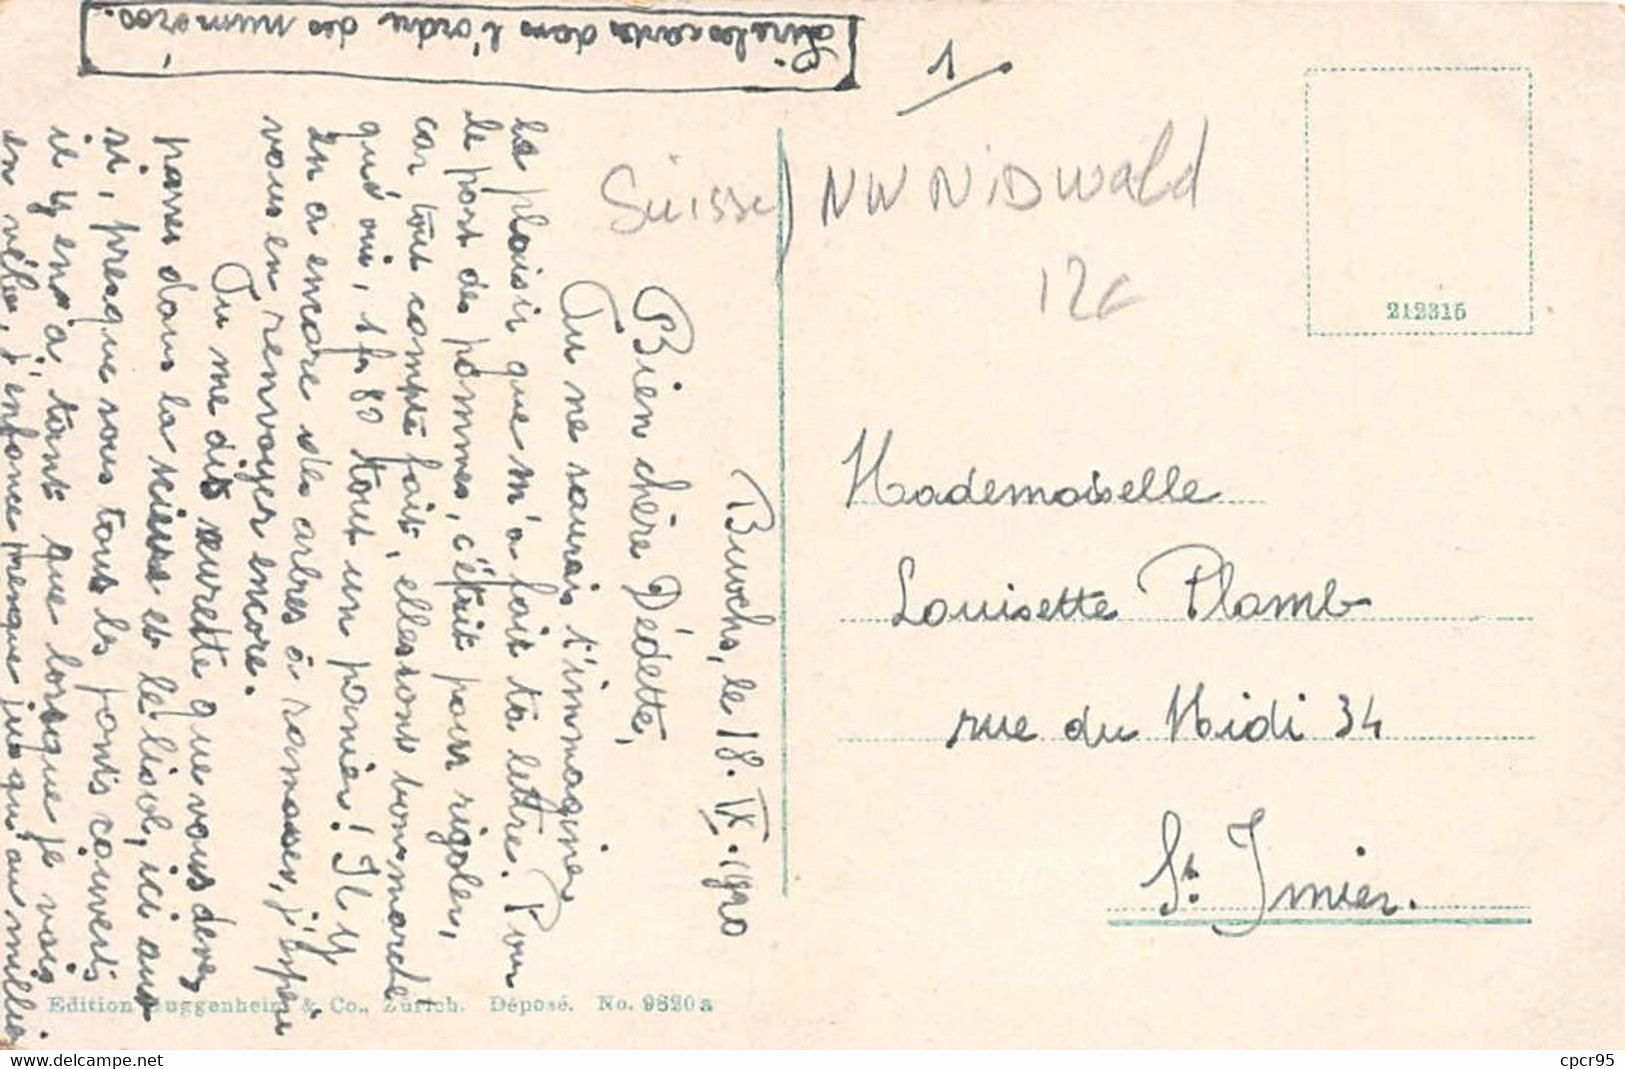 Lire les cartes dans l'ordre des numéros.
1
Suisse NW NiDWald
12c
212315
Buochs, le 18. IX. 1920
Bien chère Dédette,
Tu ne saurais t'immaginer
le plaisir que m'a fait ta lettre. Pour
le port des pommes, c'était pour rigoler,
car tout compte fait, elles sont bon marché
que oui, 1 fr 80 tout un panier! Il y
en a encore des arbres à ramasser, j'espère
vous en renvoyer encore.
Tu me dis seurette que vous devez
passer dans la et le lisol, ici aus
si, presque sous tous les ponts couverts
il y en a tant que lorsque je vais
en vélo, j'enfonce presque jusqu'au milieu
Mademoiselle
Louisette Plamb
rue du Midi 34
St. Imier.
Edition Guggenheim & Co., Zürich. Déposé. No. 9820 a
cpcr95